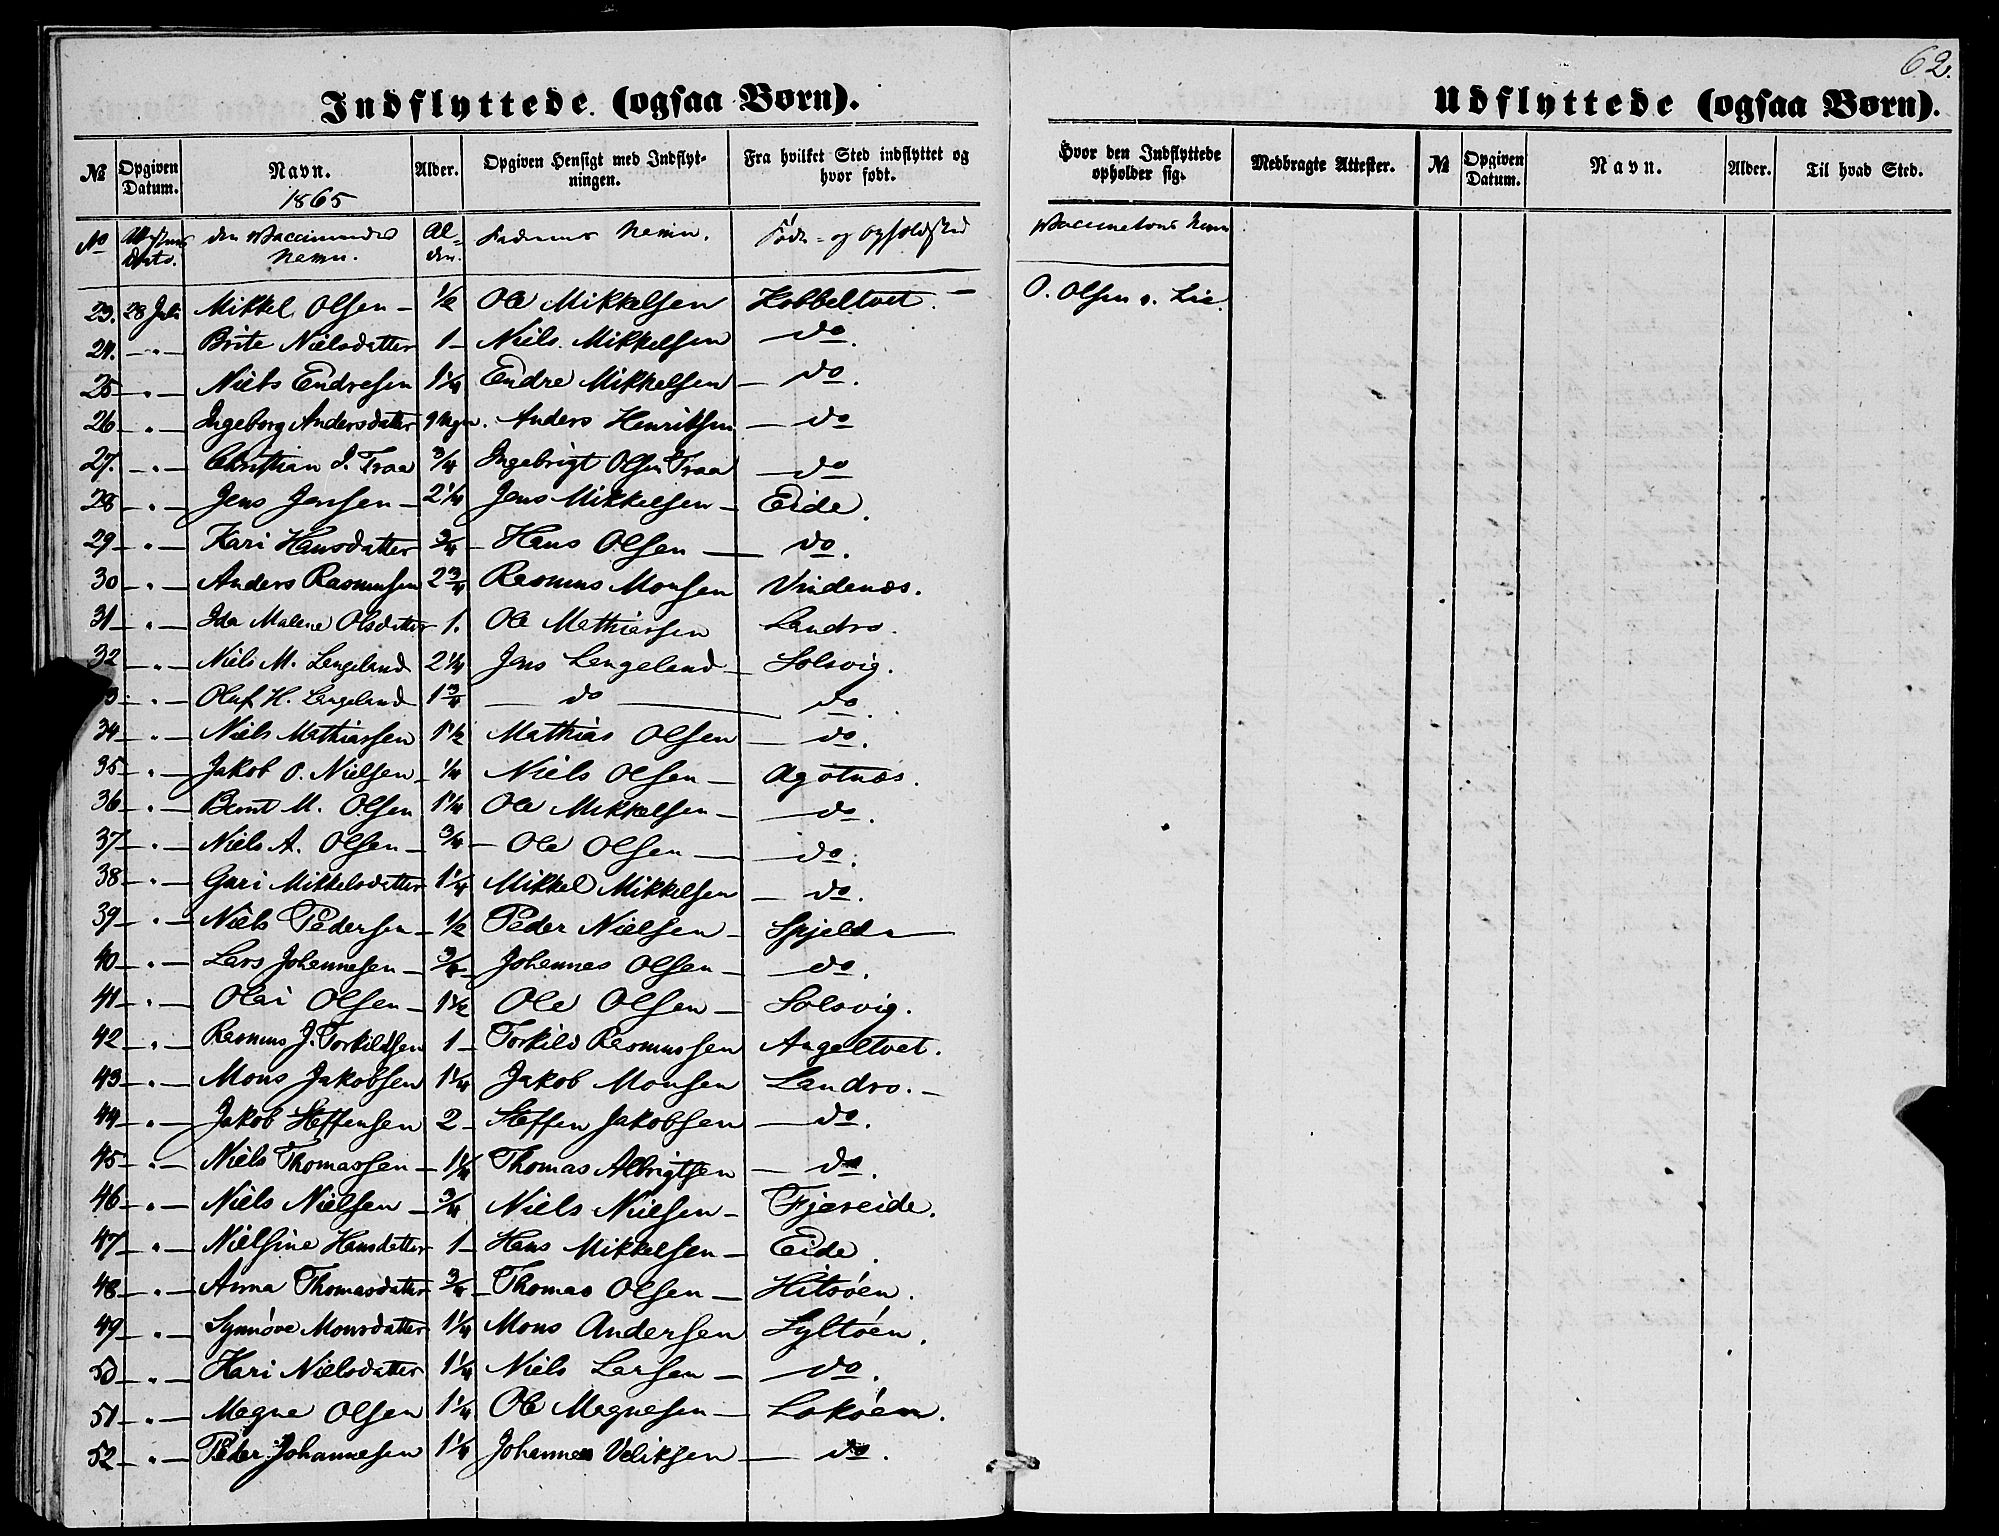 62.
Indflyttede (ogsaa Børn).
Udflyttede (ogsaa Børn).
№ Opgiven Datum. Navn. Alder. Opgiven Hensigt med Indflytningen. Fra hvilket Sted indflyttet og hvor født. Hvor den Indflyttede opholder sig. Medbragte Attester. № Opgiven Datum. Navn. Alder. Til hvad Sted.
1865
No Attestens Dato. den Vaccineredes Navn. Alder. Faderens Navn. Føde- og Opholdsted Vaccinateurs Navn
23. 28 Juli Mikkel Olsen - 1/2 Ole Mikkelsen Kobbeltvet. - O. Olsen v. Lie.
24. - " - Brite Nielsdatter 1 - Niels Mikkelsen do.
25 - " - Niels Endresen 1 1/4 Endre Mikkelsen - do.
26 - " - Ingeborg Andersdatter 9 Ugr. Anders Henriksen - do
27. - " - Christian I. Traa 3/4 Ingebrigt Olsen Traa - do
28 - " - Jens Jensen - 2 1/4 Jens Mikkelsen - Eide.
29 - " - Kari Hansdatter 3/4 - Hans Olsen - do.
30 - " - Anders Rasmussen 2 3/4 Rasmus Monsen Vindenæs.
31 - " - Ida Malene Olsdatter 1. Ole Mathiassen Landro.
32 - " - Niels M. Langeland 2 1/4 Jens Langeland - Solsvig.
3 - " - Oluf H. Langeland 1 3/4 - do - do.
34 - " - Niels Mathiassen 1 1/2 Mathias Olsen - do.
35 - " - Jakob O. Nielsen - 1/4 Niels Olsen - Agotnæs.
36 - " - Bernt M. Olsen 1 1/4 Ole Mikkelsen - do.
37 - " - Niels A. Olsen - 3/4 - Ole Olsen - do.
38 - " - Guri Mikkelsdatter 1 1/4 Mikkel Mikkelsen - do.
39 - " - Niels Pedersen - 1/2 Peder Nielsen - Spjeld -
40 - " - Lars Johannesen - 3/4 - Johannes Olsen - do.
41 - " - Olai Olsen - 1 1/2 Ole Olsen - Solsvig.
42 - " - Rasmus J. Torkildsen 1 - Torkild Rasmussen Angeltvet.
43 - " - Mons Jakobsen 1 1/4 Jakob Monsen Landro. -
44 - " - Jakob Steffensen 2 - Steffen Jakobsen - do.
45 - " - Niels Thomassen - 1 1/4 Thomas Albrigtsen - do.
46 - " - Niels Nielsen - 3/4 Niels Nielsen - Fjæreide.
47 - " - Nielsine Hansdatter 1 - Hans Mikkelsen - Eide.
48 - " - Anna Thomasdatter 3/4 - Thomas Olsen - Hitsöen.
49 - " - Synnöve Monsdatter 1 1/4 Mons Andersen Syltöen.
50 - " - Kari Nielsdatter 1 1/4 Niels Larsen - do.
51 - " - Magne Olsen 1 1/4 Ole Magnesen - Loköen.
52 - " - Peder Johannesen 1 1/4 Johannes Veliksen - do.